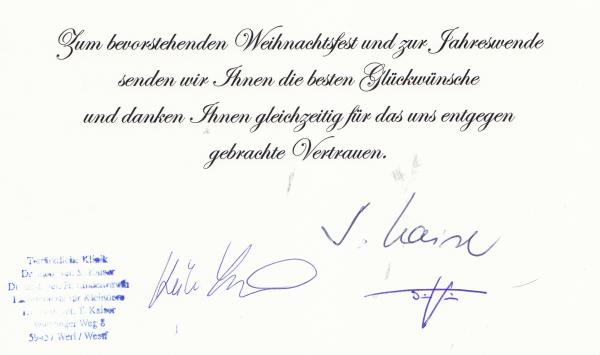 Zum bevorstehenden Weihnachtsfest und zur Jahreswende
senden wir Ihnen die besten Glückwünsche
und danken Ihnen gleichzeitig für das uns entgegen
gebrachte Vertrauen.
S. Kaiser
Tierärztliche Klinik
Dr. med. vet. S. Kaiser
Dr. med. vet. H.
für Kleintiere
vet. T. Kaiser
Weg 8
59457 Werl / Westf